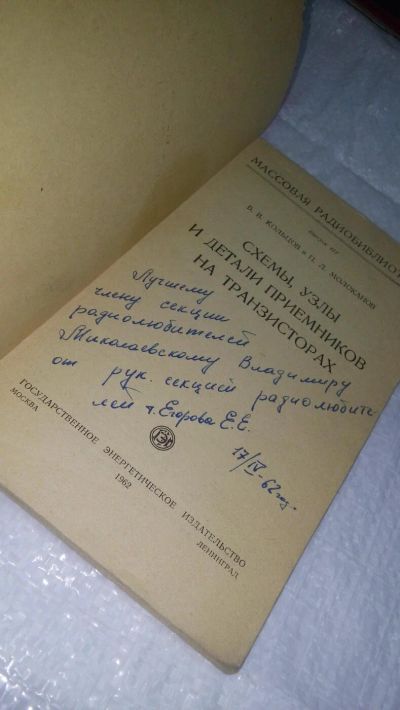 МАССОВАЯ РАДИОБИБЛИОТ
В. В. КОЛЬЦОВ и П. Д. МОЛОКАНОВ
СХЕМЫ, УЗЛЫ
И ДЕТАЛИ ПРИЕМНИКОВ
НА ТРАНЗИСТОРАХ
Лучшему
члену секции
радиолюбителей
Николаевскому Владимиру
от рук. секцией радиолюбите
лей т. Егорова Е.Е.
17/IV-62 год.
ГЭИ
ГОСУДАРСТВЕННОЕ ЭНЕРГЕТИЧЕСКОЕ ИЗДАТЕЛЬСТВО
МОСКВА 1962 ЛЕНИНГРАД